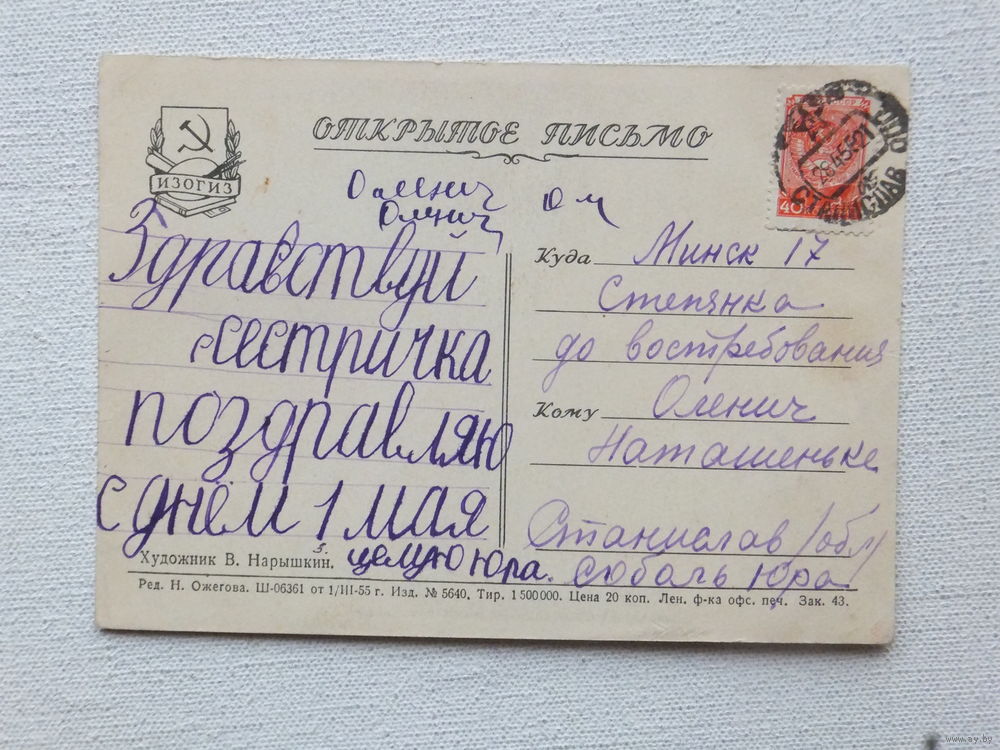 ОТКРЫТОЕ ПИСЬМО
ИЗОГИЗ
СССР
40
СТАНИСЛАВ
Оленич
Оленич
Юм
Здравствуй
сестричка
поздравляю
с днём 1 мая
целую Юра.
Куда Минск 17
Степянка
до востребования
Кому Оленич
Наташеньке
Станислав /обл/
Юра
Художник В. Нарышкин.
Ред. Н. Ожегова. Ш-06361 от 1/III-55 г. Изд. № 5640. Тир. 1 500 000. Цена 20 коп. Лен. ф-ка офс. печ. Зак. 43.
www.ay.by